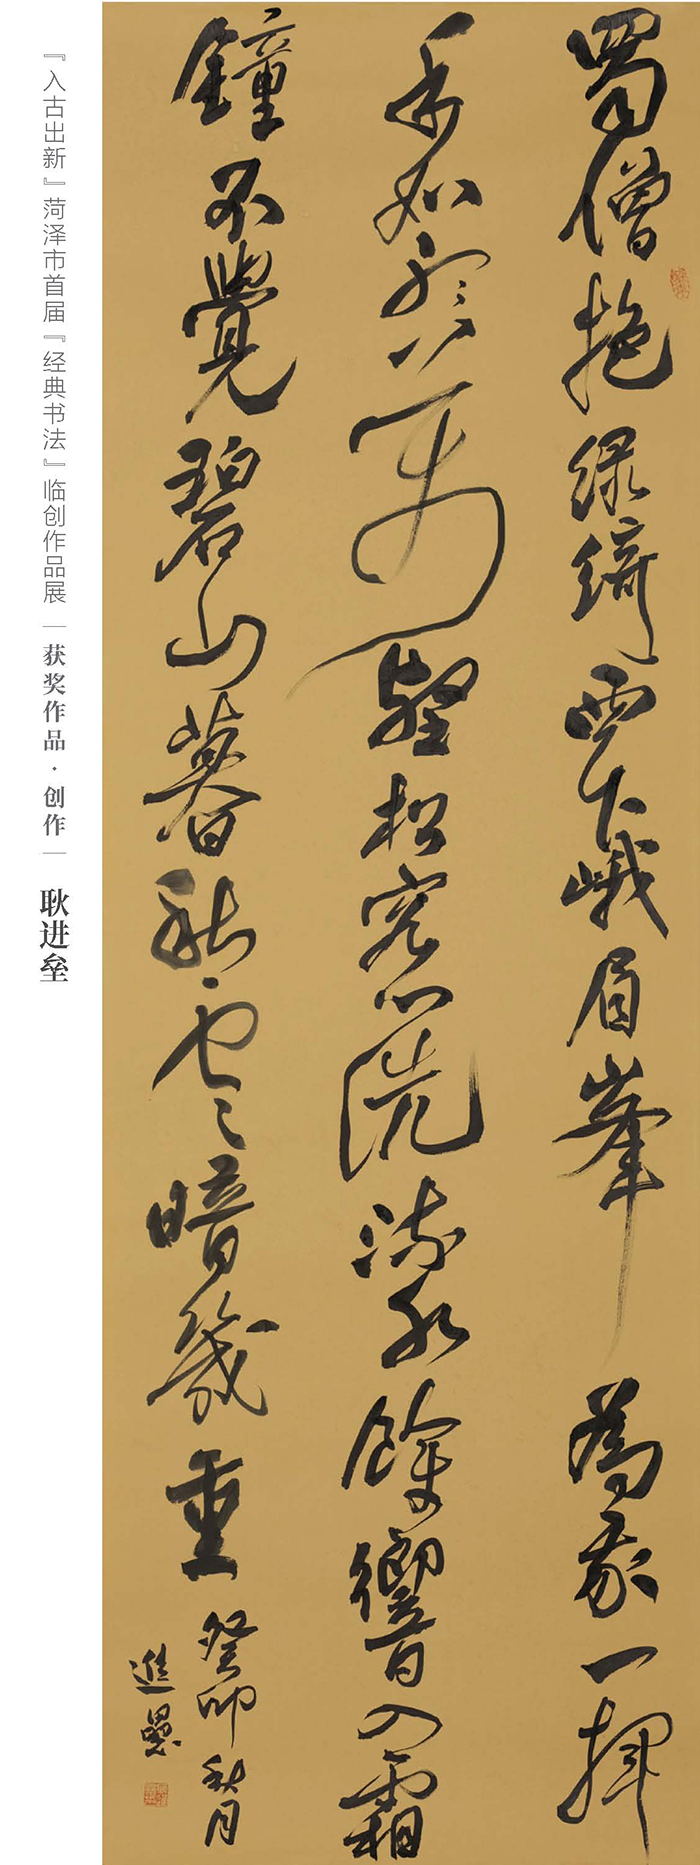 蜀僧抱綠綺西下峨眉峯為我一揮
手如聽萬壑松客心洗流水餘響入霜
鐘不覺碧山暮秋雲暗幾重
癸卯秋月
進壘
『入古出新』菏泽市首届『经典书法』临创作品展｜获奖作品·创作｜耿进垒